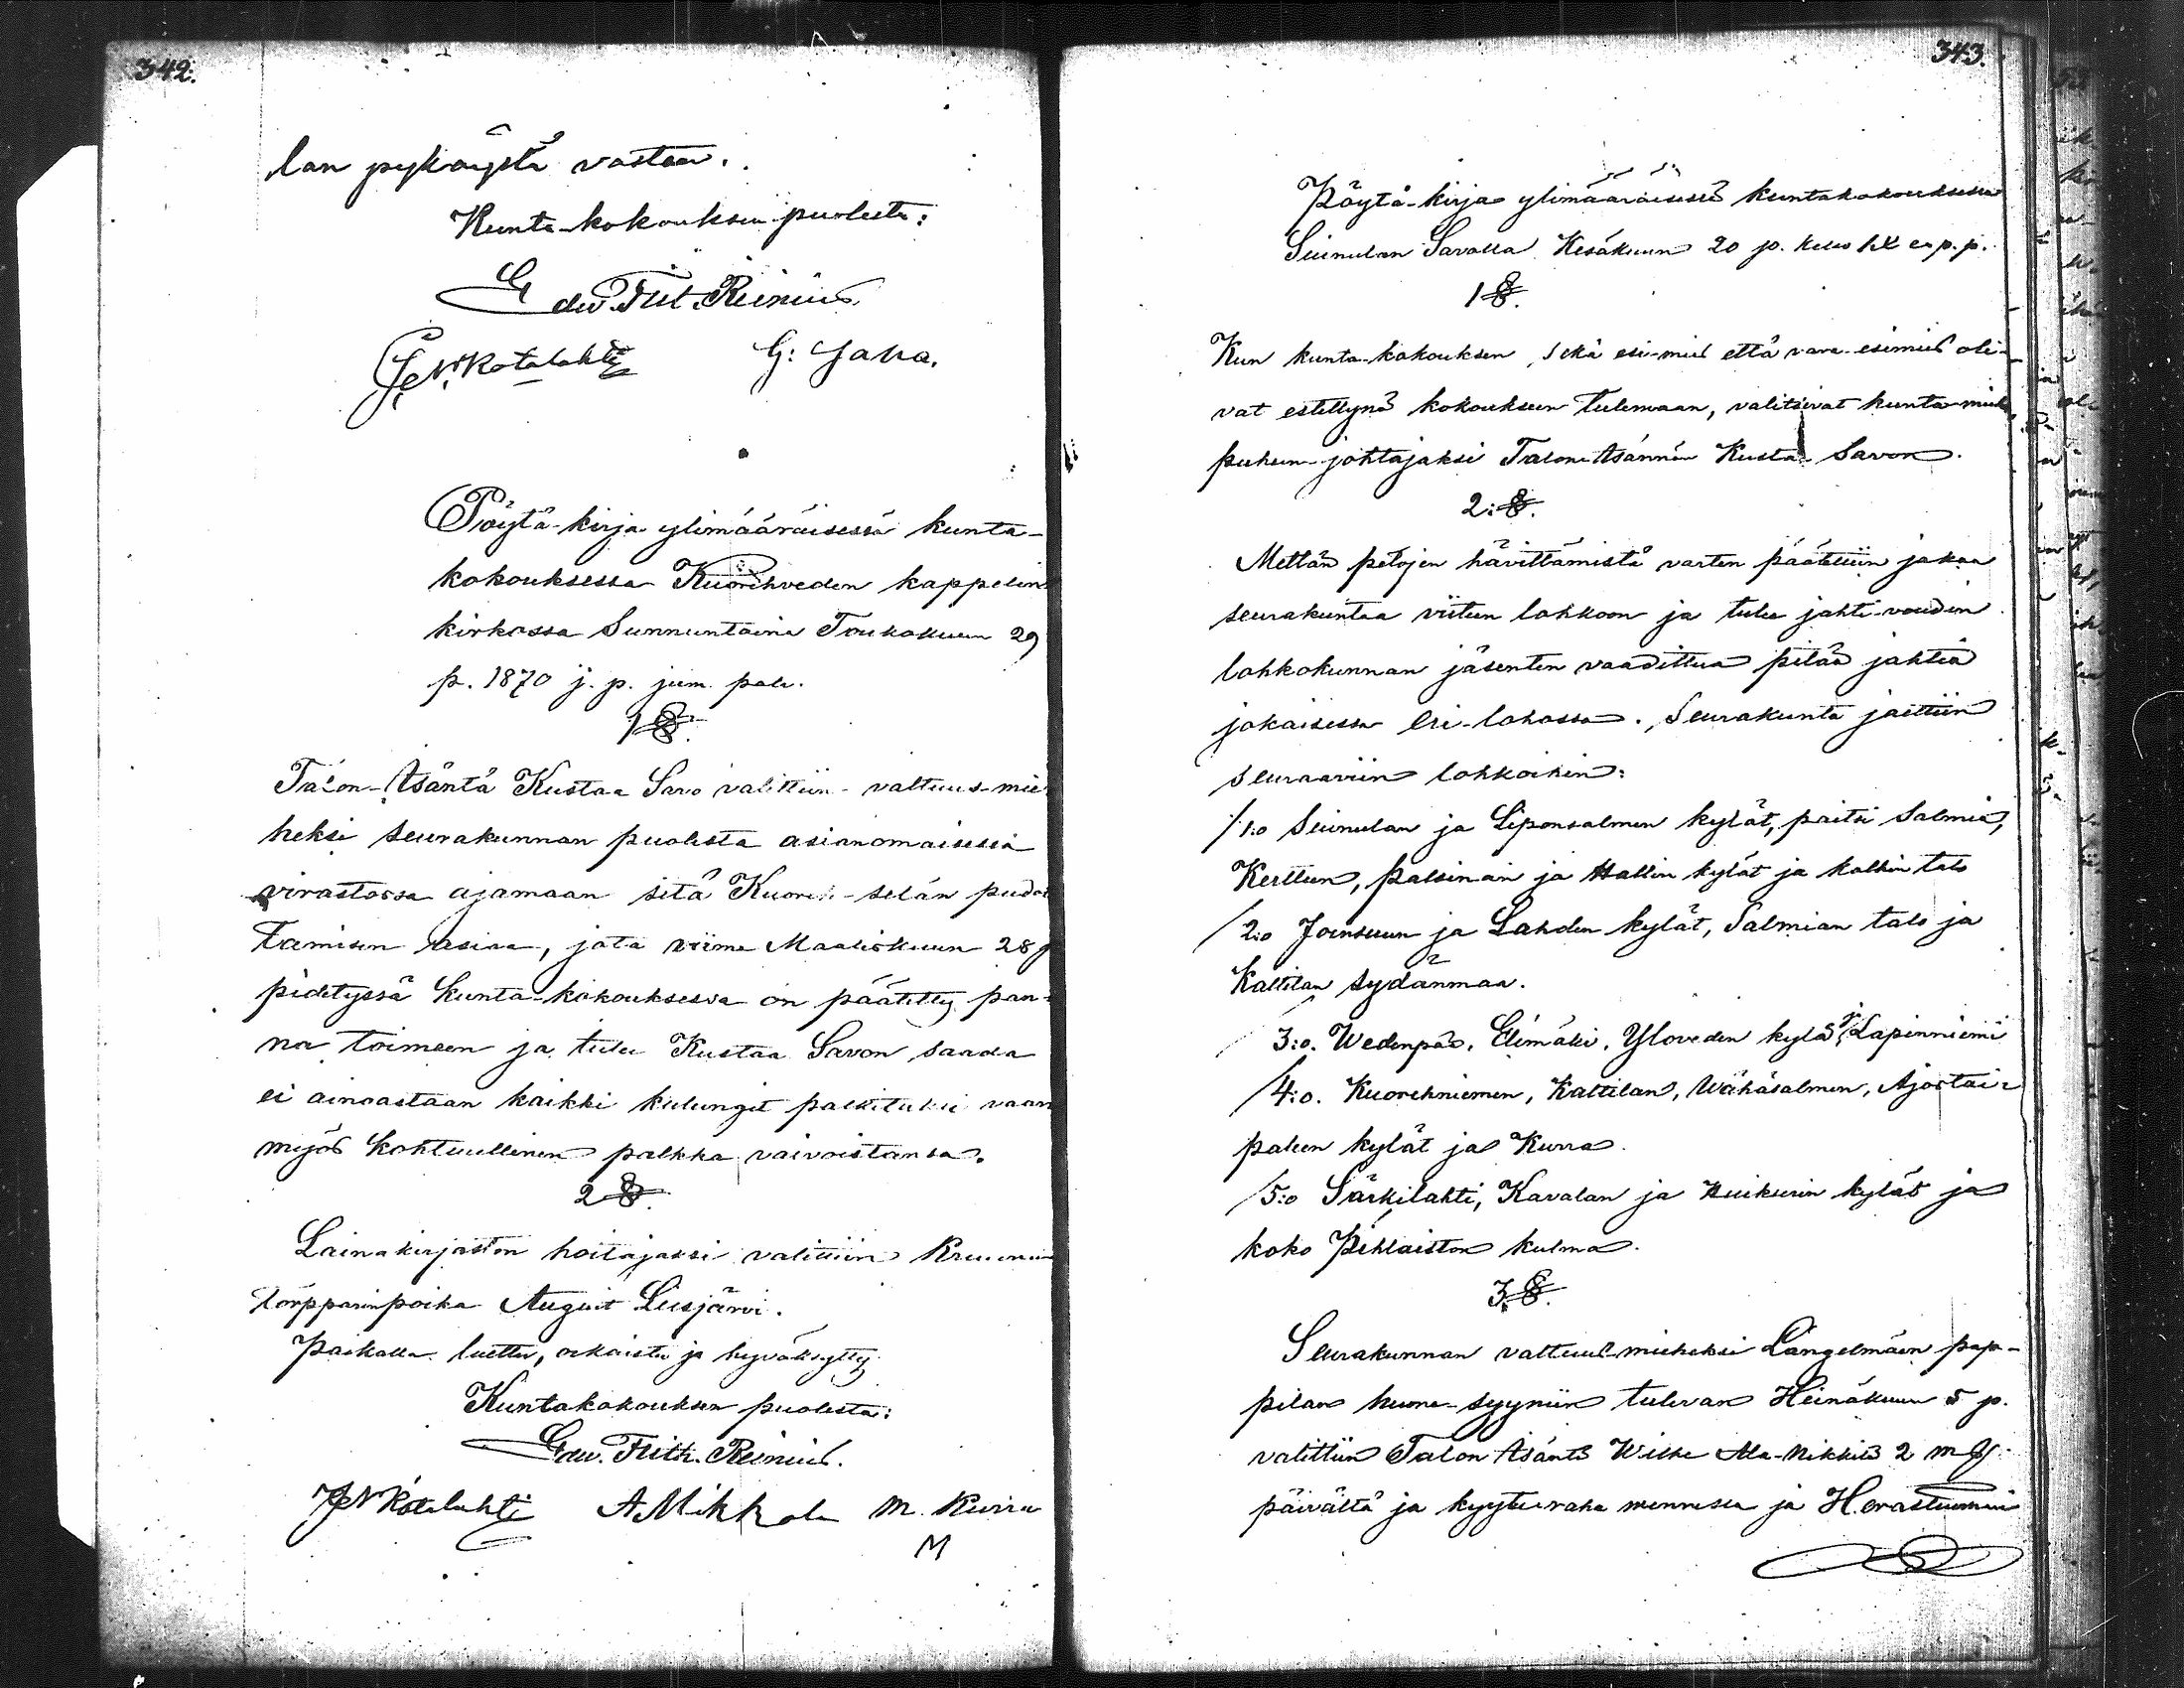 342.
lan pykäystä vastaan.
Kunta-kokouksen puolesta:
Edv. Frit. Reinius.
J. N. Kotalahti G: Jaka.
Pöytä-kirja ylimääräisessä kunta-
kokouksessa Kuorehveden kappelin
kirkossa Sunnuntaina Toukokuun 29
p. 1870 j. p. jum. palv.
1 §.
Talon-Isäntä Kustaa Savo valittiin valtuus-mie
heksi seurakunnan puolesta asianomaisessa
virastossa ajamaan sitä Kuoreh-selän pudot
tamisen asiaa, jota viime Maaliskuun 28 p
pidetyssä kunta-kokouksessa on päätetty pan-
na toimeen ja tulee Kustaa Savon saada
ei ainoastaan kaikki kulungit palkituksi vaan
myös kohtuullinen palkka vaivoistansa.
2 §.
Lainakirjaston hoitajaksi valittiin Kruunun
torpparinpoika August Liesjärvi.
Paikalla luettu, oikaistu ja hyväksytty
Kuntakokouksen puolesta:
Edv. Frith. Reinius.
J N Kotalahti A Mikkola M. Kurra
M
343.
Pöytä-kirja ylimääräisessä kuntakokouksessa
Seinulan Savolla Kesäkuun 20 p. kello
1 §.
Kun kunta-kokouksen sekä esi-mies että vara-esimies oli-
vat estettynä kokoukseen tulemaan, valitsivat kunta-miehe
puheen-johtajaksi Talon-Isännän Kustaa Savon.
2: §.
Mettän petojen hävittämistä varten päätettiin jakaa
seurakuntaa viiteen lohkoon ja tulee jahti-voudin
lohkokunnan jäsenten vaadittua pitää jahtia
jokaisessa eri-lohossa. Seurakunta jaettiin
seuraaviin lohkoihin:
1:o Seinulan ja Leponsalmen kylät, paitsi Salmia,
Kerttun, Palsinan ja Hallin kylät ja Kalkin talo
2:o Joensuun ja Lahden kylät, Salmian talo ja
Kaltilan sydänmaa.
3:o. Wedenpää, Elimäki, Yloveden kylä ja Lapinniemi
4:o. Kuorehniemen, Kaltilan, Wähäsalmen, Ajostai-
paleen kylät ja Kurra.
5:o Särkilahti, Kavalan ja Huikurin kylät ja
koko Pihlaiston kulma.
3 §.
Seurakunnan valtuus-mieheksi Längelmäen pap-
pilan huone-syyniin tulevan Heinäkuun 5 p.
valittiin Talon Isäntä Wille Ala-Nikkilä 2 m
päivältä ja kyytiraha mennessä ja H. erastuomari